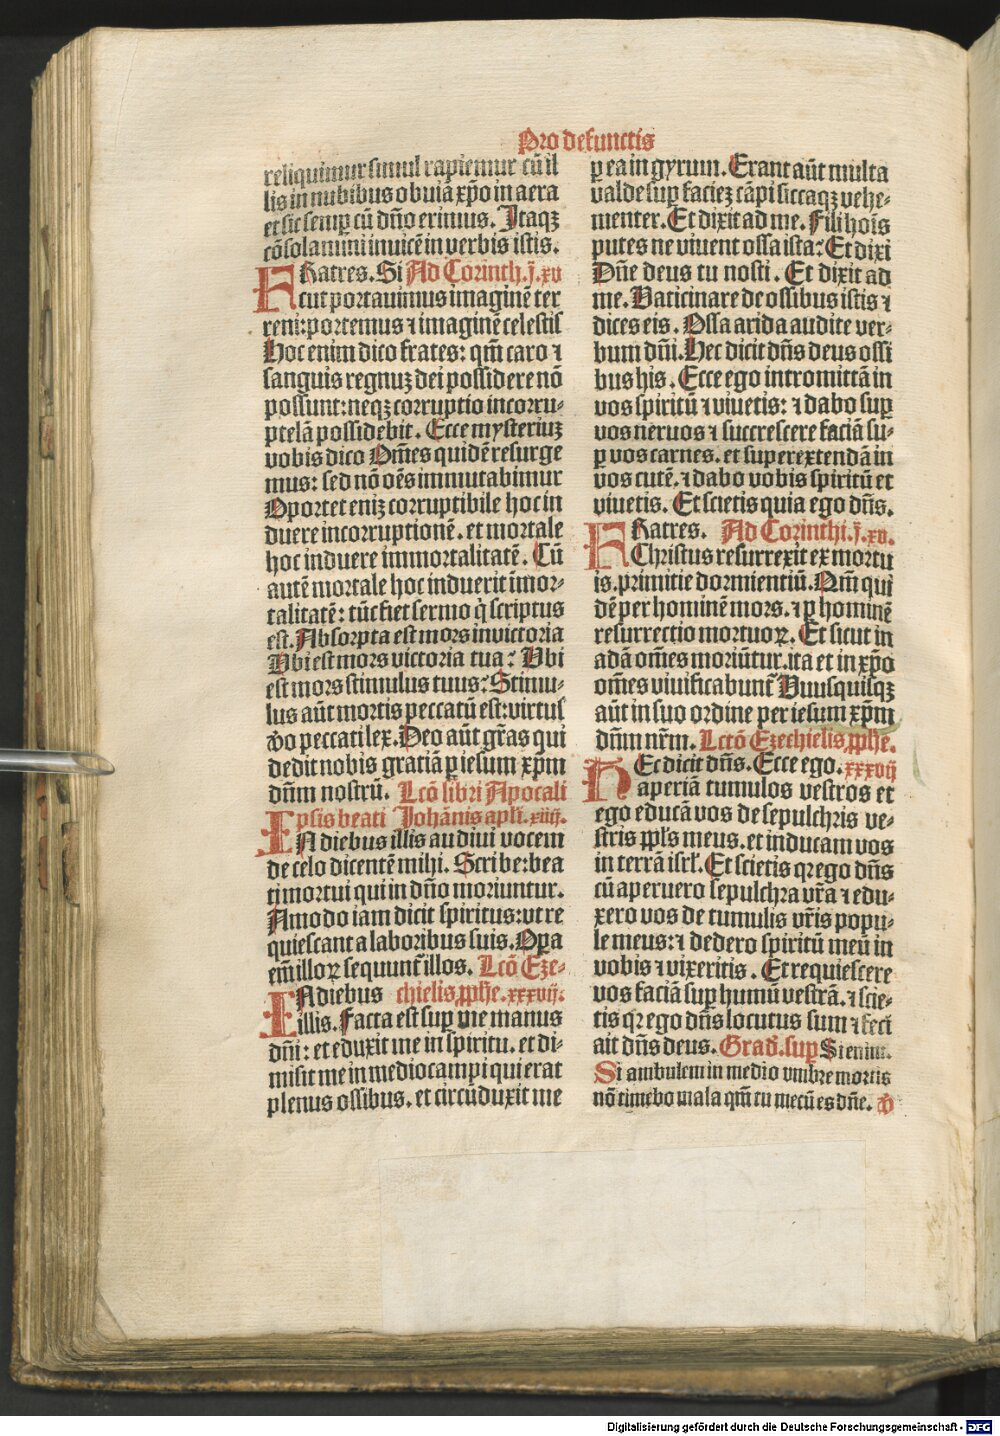 Pro defunctis
reliquimur simul rapiemur cū il
lis in nubibus obuiā xp̄o in aera
et sic semꝑ cū dn̄o erimus. Itaqꝫ
cōsolamini inuicē in verbis istis.
FRatres. Si Ad Corinth. j. xv
cut portauimus imaginē ter
reni: portemus ⁊ imaginē celestis
Hoc enim dico fratres: qm̄ caro ⁊
sanguis regnuꝫ dei possidere nō
possunt: neqꝫ corruptio incorru-
ptelā possidebit. Ecce mysteriuꝫ
vobis dico Om̄es quidē resurge
mus: sed nō oēs immutabimur
Oportet eniꝫ corruptibile hoc in
duere incorruptionē. et mortale
hoc induere immortalitatē. Cū
autē mortale hoc induerit īmor-
talitatē: tūc fiet sermo q̇ scriptus
est. Absorpta est mors in victoria
Vbi est mors victoria tua? Vbi
est mors stimulus tuus? Stimu-
lus aūt mortis peccatū est: virtus
v̓o peccati lex. Deo aūt gr̄as qui
dedit nobis gratiā ꝑ iesum xp̄m
dn̄m nostrū. Lcō libri Apocali
psis beati Johānis apl̄i. xiiij.
IN diebus illis audiui vocem
de celo dicentē mihi. Scribe: bea
ti mortui qui in dn̄o moriuntur.
Amodo iam dicit spiritus: vt re
quiescant a laboribus suis. Oꝑa
em̄ illoꝝ sequunt̄ illos. Lcō Eze-
IN diebus chielis ꝓph̄e. xxxvij.
illis. Facta est suꝑ me manus
dn̄i: et eduxit me in spiritu. et di-
misit me in medio campi qui erat
plenus ossibus. et circūduxit me
ꝑ ea in gyrum. Erant aūt multa
valde suꝑ facieꝫ cāpi siccaqꝫ vehe-
menter. Et dixit ad me. Fili hoīs
putes ne viuent ossa ista? Et dixi
Dn̄e deus tu nosti. Et dixit ad
me. Vaticinare de ossibus istis ⁊
dices eis. Ossa arida audite ver-
bum dn̄i. Hec dicit dn̄s deus ossi
bus his. Ecce ego intromittā in
vos spiritū ⁊ viuetis: ⁊ dabo suꝑ
vos neruos ⁊ succrescere faciā su-
ꝑ vos carnes. et superextendā in
vos cutē. ⁊ dabo vobis spiritū et
viuetis. Et scietis quia ego dn̄s.
FRatres. Ad Corinthi. j. xv.
Christus resurrexit ex mortu
is. primitie dormientiū. Qm̄ qui
dē per hominē mors. ⁊ ꝑ hominē
resurrectio mortuoꝝ. Et sicut in
adā om̄es moriūtur. ita et in xp̄o
om̄es viuificabunt̄ Vnusquisqꝫ
aūt in suo ordine per iesum xp̄m
dn̄m nr̄m. Lctō Ezechielis ꝓph̄e.
HEc dicit dn̄s. Ecce ego. xxxvij
aperiā tumulos vestros et
ego educā vos de sepulchris ve-
stris ppl̄s meus. et inducam vos
in terrā isrl̄. Et scietis qr ego dn̄s
cū aperuero sepulchra vr̄a ⁊ edu-
xero vos de tumulis vr̄is popu-
le meus: ⁊ dedero spiritū meū in
vobis ⁊ vixeritis. Et requiescere
vos faciā suꝑ humū vestrā. ⁊ scie-
tis qr ego dn̄s locutus sum ⁊ feci
ait dn̄s deus. Grad̄. suꝑ Si enim.
Si ambulem in medio vmbre mortis
nō timebo mala qm̄ tu mecū es dn̄e. v̓
Digitalisierung gefördert durch die Deutsche Forschungsgemeinschaft - DFG